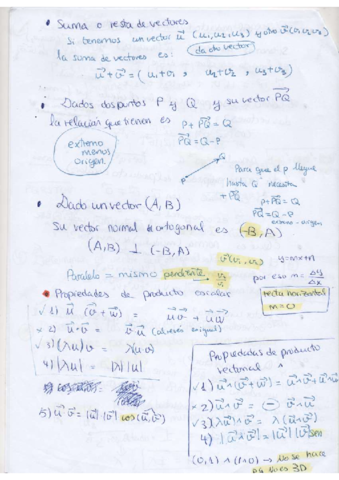 • Suma o resta de vectores
si tenemos un vector u⃗ (u₁, u₂, u₃) y otro v⃗ (v₁, v₂, v₃)
la suma de vectores es: da otro vector
u⃗ + v⃗ = (u₁+v₁, u₂+v₂, u₃+v₃)
• Dados dos puntos P y Q y su vector PQ⃗
la relación que tienen es P + PQ⃗ = Q
PQ⃗ = Q-P
extremo
menos
origen
P
Q
Para que el p llegue
hasta Q necesita
P+PQ⃗ = Q
PQ⃗ = Q-P
extremo - origen
• Dado un vector (A, B)
Su vector normal ortogonal es (-B, A)
(A, B) ⊥ (-B, A)
v⃗ (v₁, v₂)
y=mx+n
Paralelo = mismo pendiente → v₂/v₁
por eso m = Δy/Δx
recta horizontal
m=0
• Propiedades de producto escalar
✓ 1) u⃗ (v⃗+w⃗) = u⃗v⃗ + u⃗w⃗
✓ 2) u⃗·v⃗ = v⃗ u⃗
✓ 3) (λu)v = λ(uv)
4) |λu| = |λ| |u|
5) u⃗ v⃗ = |u⃗| |v⃗| cos (u⃗, v⃗)
Propiedades de producto
vectorial
✓ 1) u⃗∧(v⃗+w⃗) = u⃗∧v⃗ + u⃗∧w⃗
✓ 2) u⃗∧v⃗ = - v⃗∧u⃗
✓ 3) λu⃗∧v⃗ = λ(u⃗∧v⃗)
4) |u⃗∧v⃗| = |u⃗| |v⃗| sen
(0,1) ∧ (1,0) → No se hace
3D